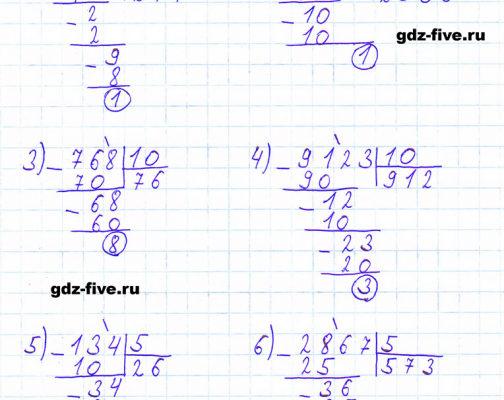 - 2
2
- 9
8
1
- 10
10
1
gdz-five.ru
3) - 768 | 10
70 | 76
- 68
60
8
4) - 9123 | 10
90 | 912
- 12
10
- 23
20
3
gdz-five.ru
5) - 134 | 5
10 | 26
- 34
6) - 2867 | 5
25 | 573
- 36